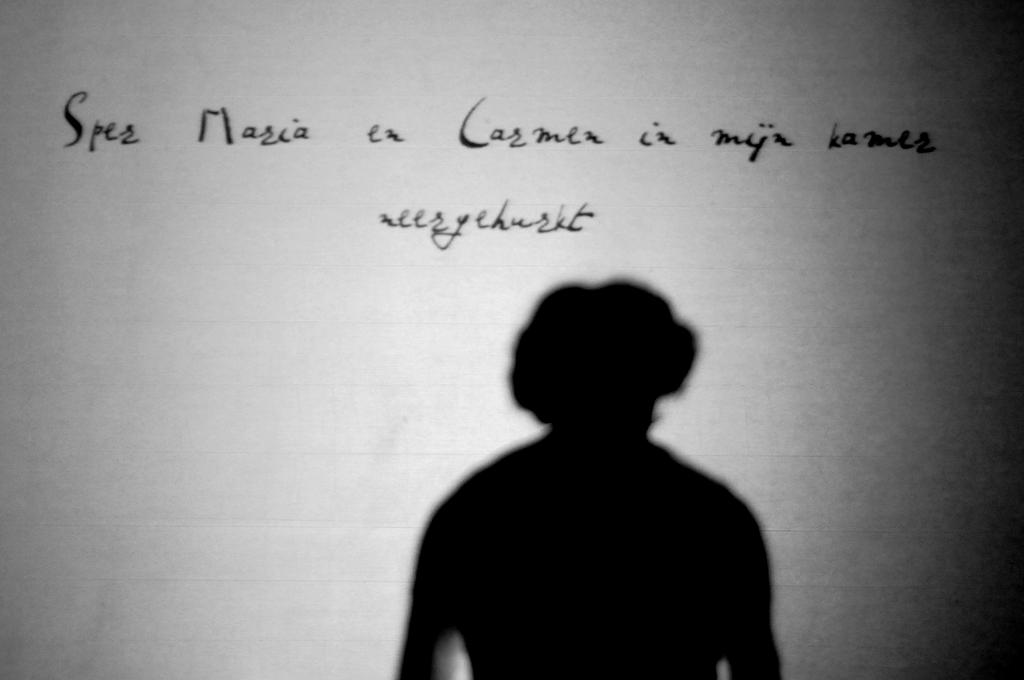 Sper Maria en Carmen in mijn kamer
neergehurkt